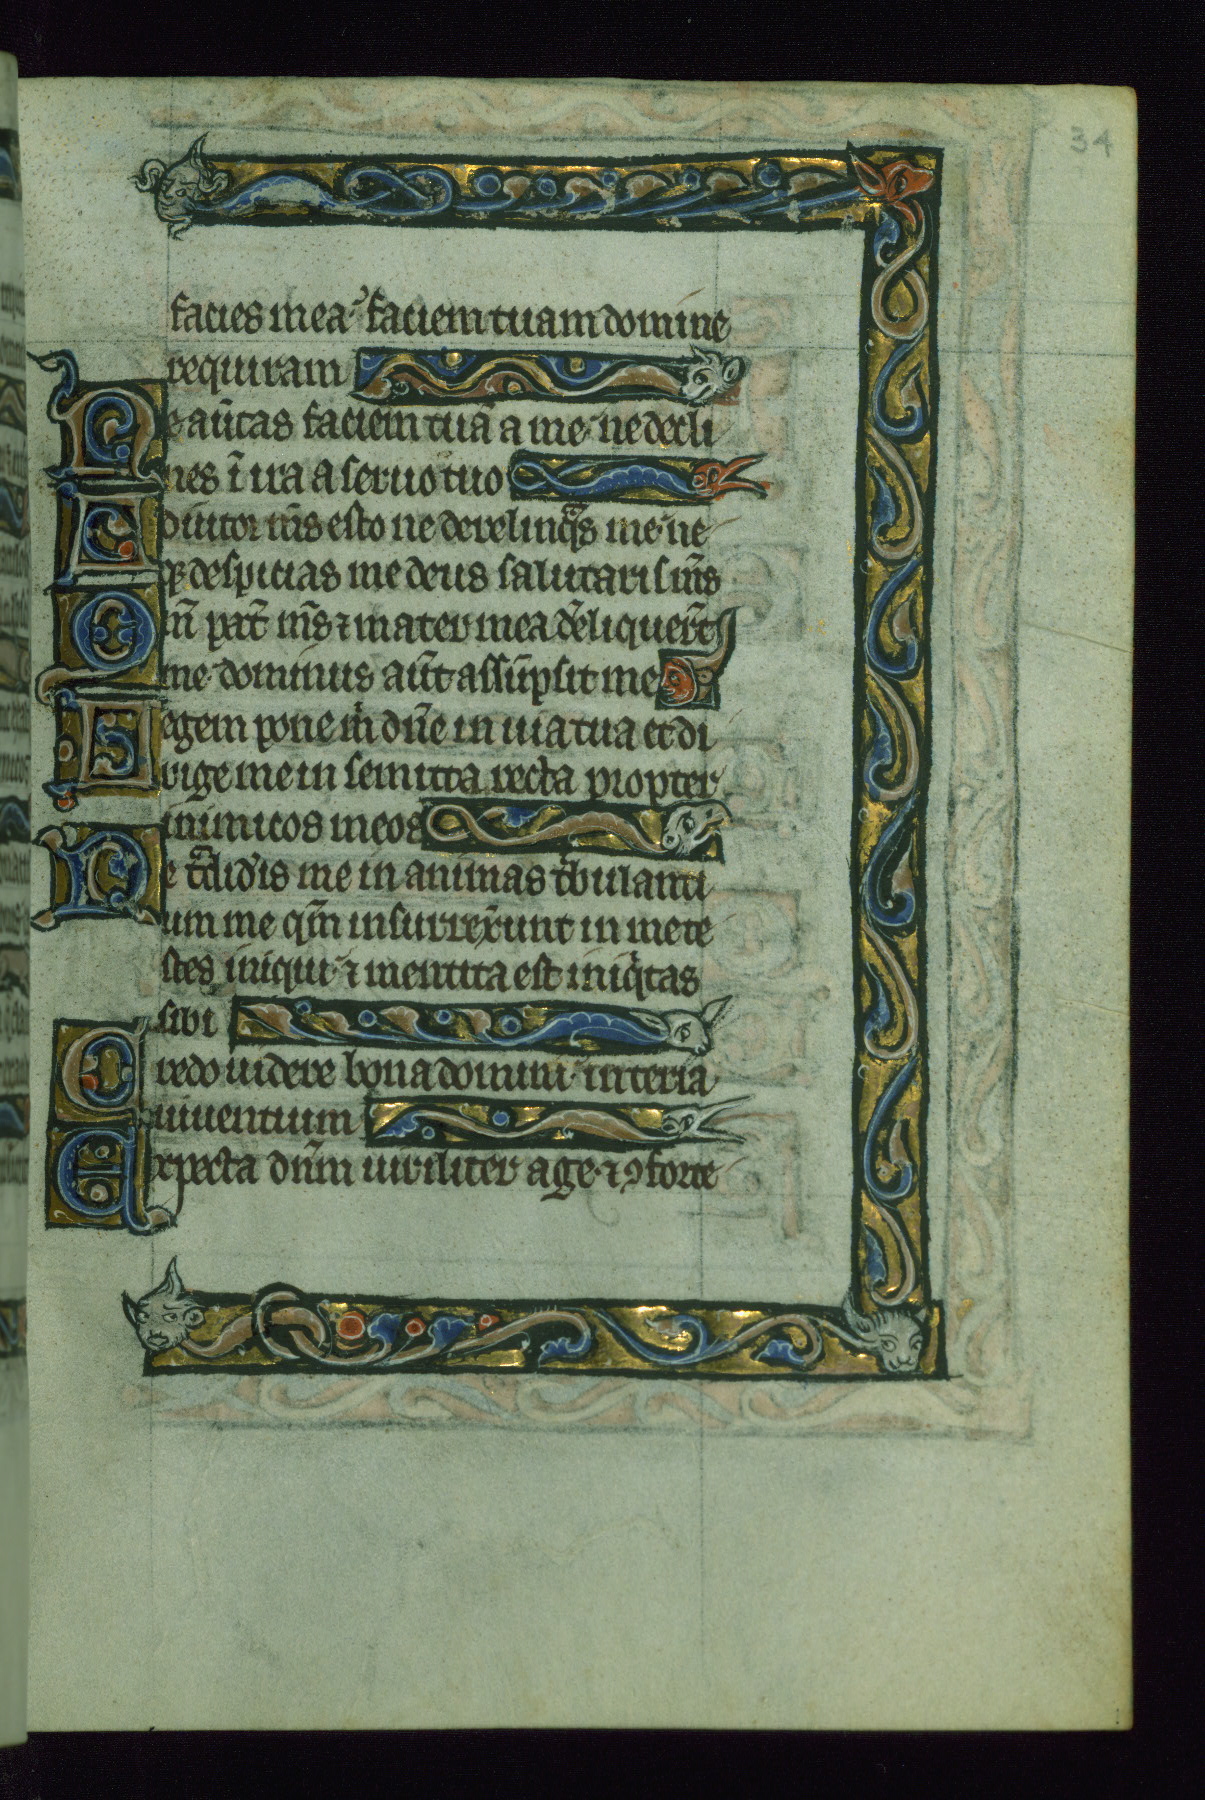 34
facies mea· faciem tuam domine
requiram
Ne aūtas faciem tuā a me· ne decli
nes ī ira a seruo tuo
Adiutor ms̄ esto ne derelinqͣs me· ne
qꝫ despicias me deus salutaris ms̄
Qm̄ pat̄ ms̄ ⁊ mater mea đeliquer̄t
me· dominus aūt assūpsit me
Legem pone m̄ dn̄e in uia tua et di
rige me in semitta recta propter
inimicos meos
Ne tͣdid'is me in animas tͥbulanti
um me qm̄ insurrexerunt in me te
stes iniqui· ⁊ mentita est iniqͥtas
sibi
Credo uidere bona domini· in terra
uiuentium
Expecta dn̄m uiriliter age· ⁊ ꝯforte